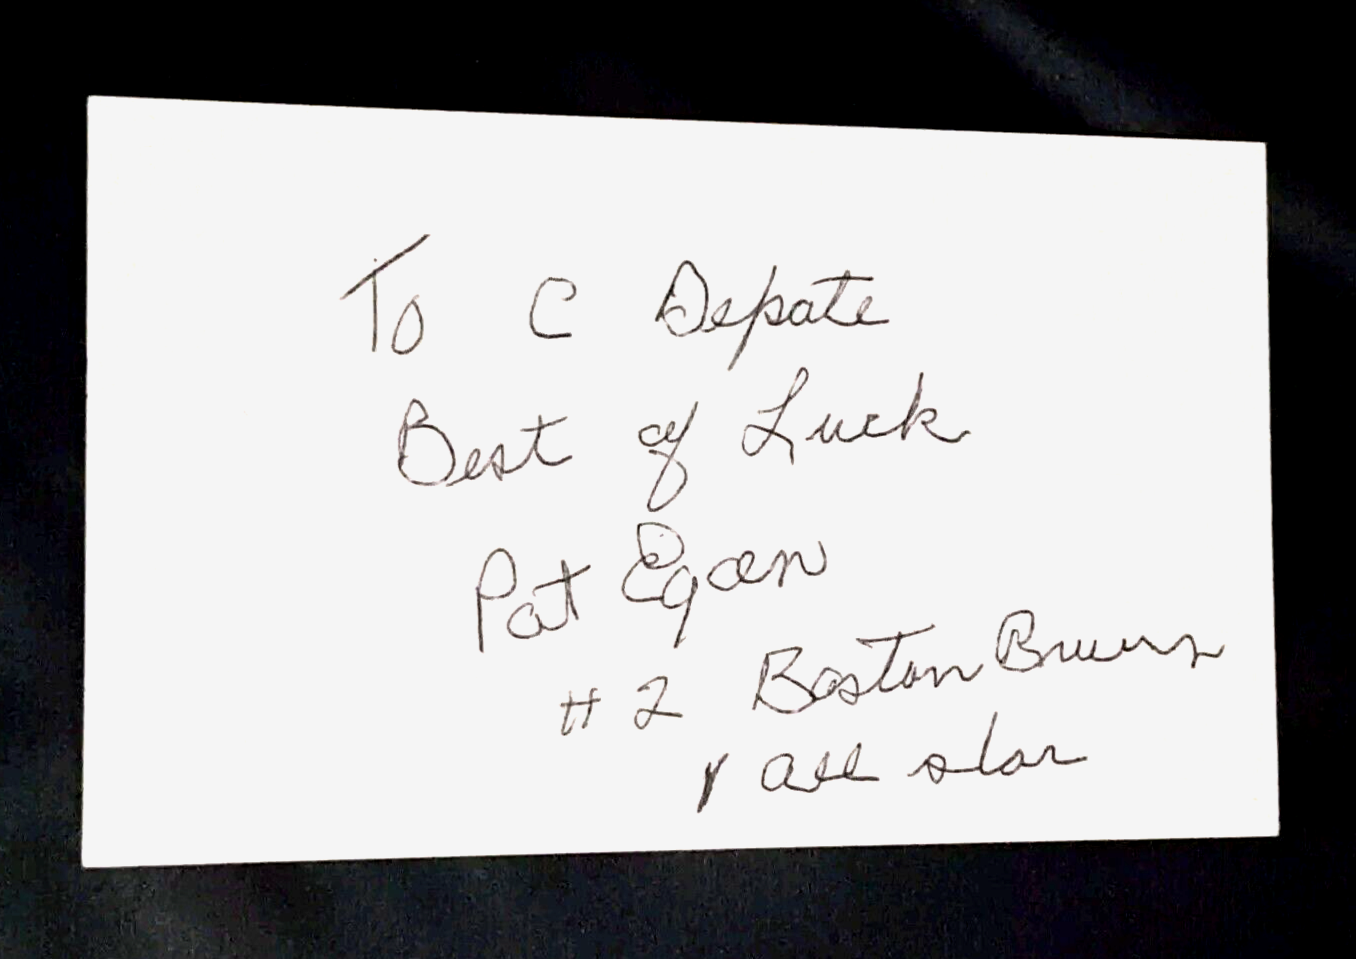 To C Depate
Best of Luck
Pat Egan
# 2 Boston Bruins
all star